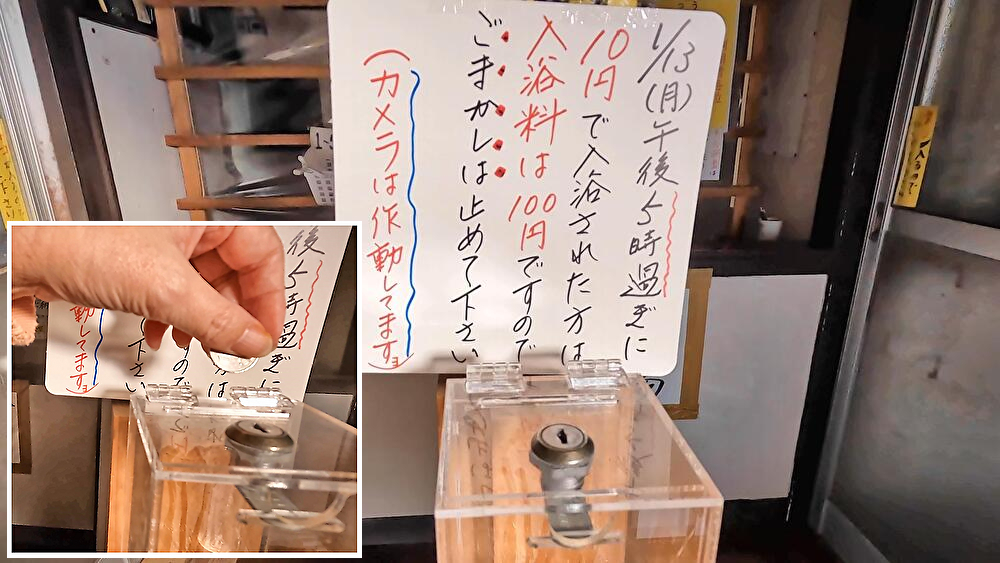 1/13(月)午後5時過ぎに
10円で入浴された方は
入浴料は100円ですので
ごまかしは止めて下さい
(カメラは作動してますョ)
後5時過ぎに
は
すので
下さい
動してますョ)